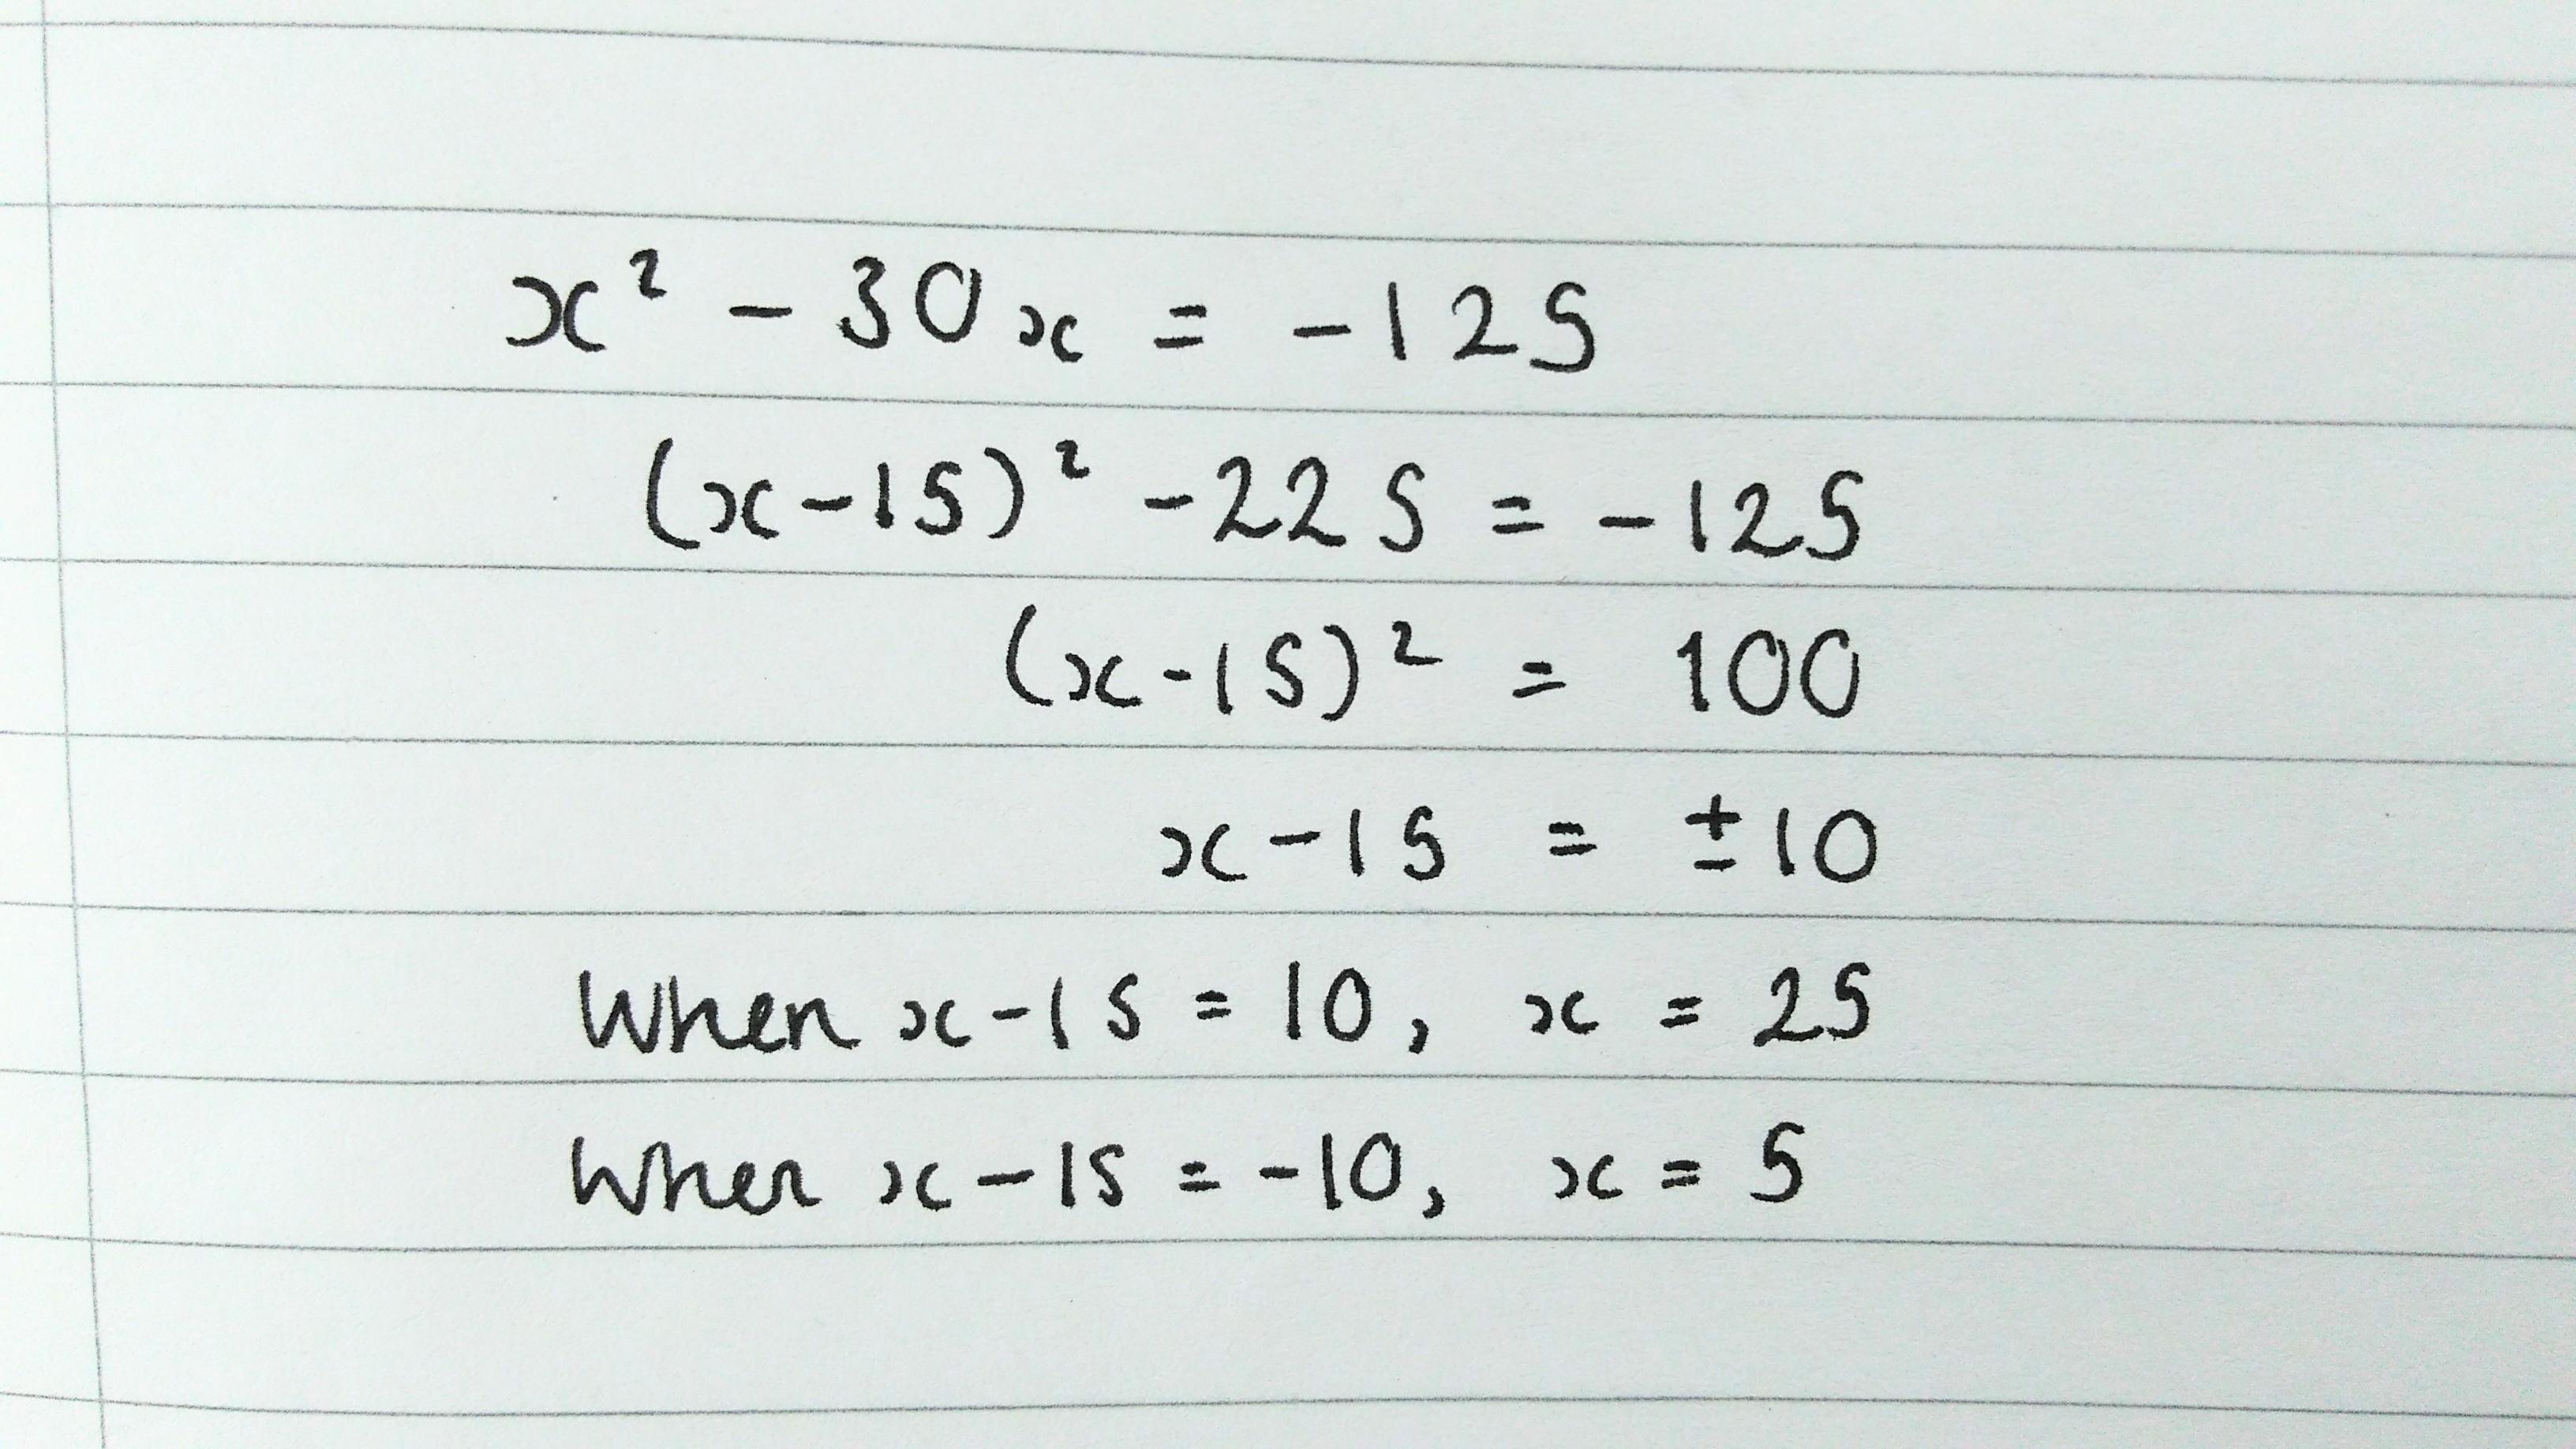 x² - 30x = -125
(x-15)² -225 = -125
(x-15)² = 100
x-15 = ±10
When x-15 = 10, x = 25
When x-15 = -10, x = 5